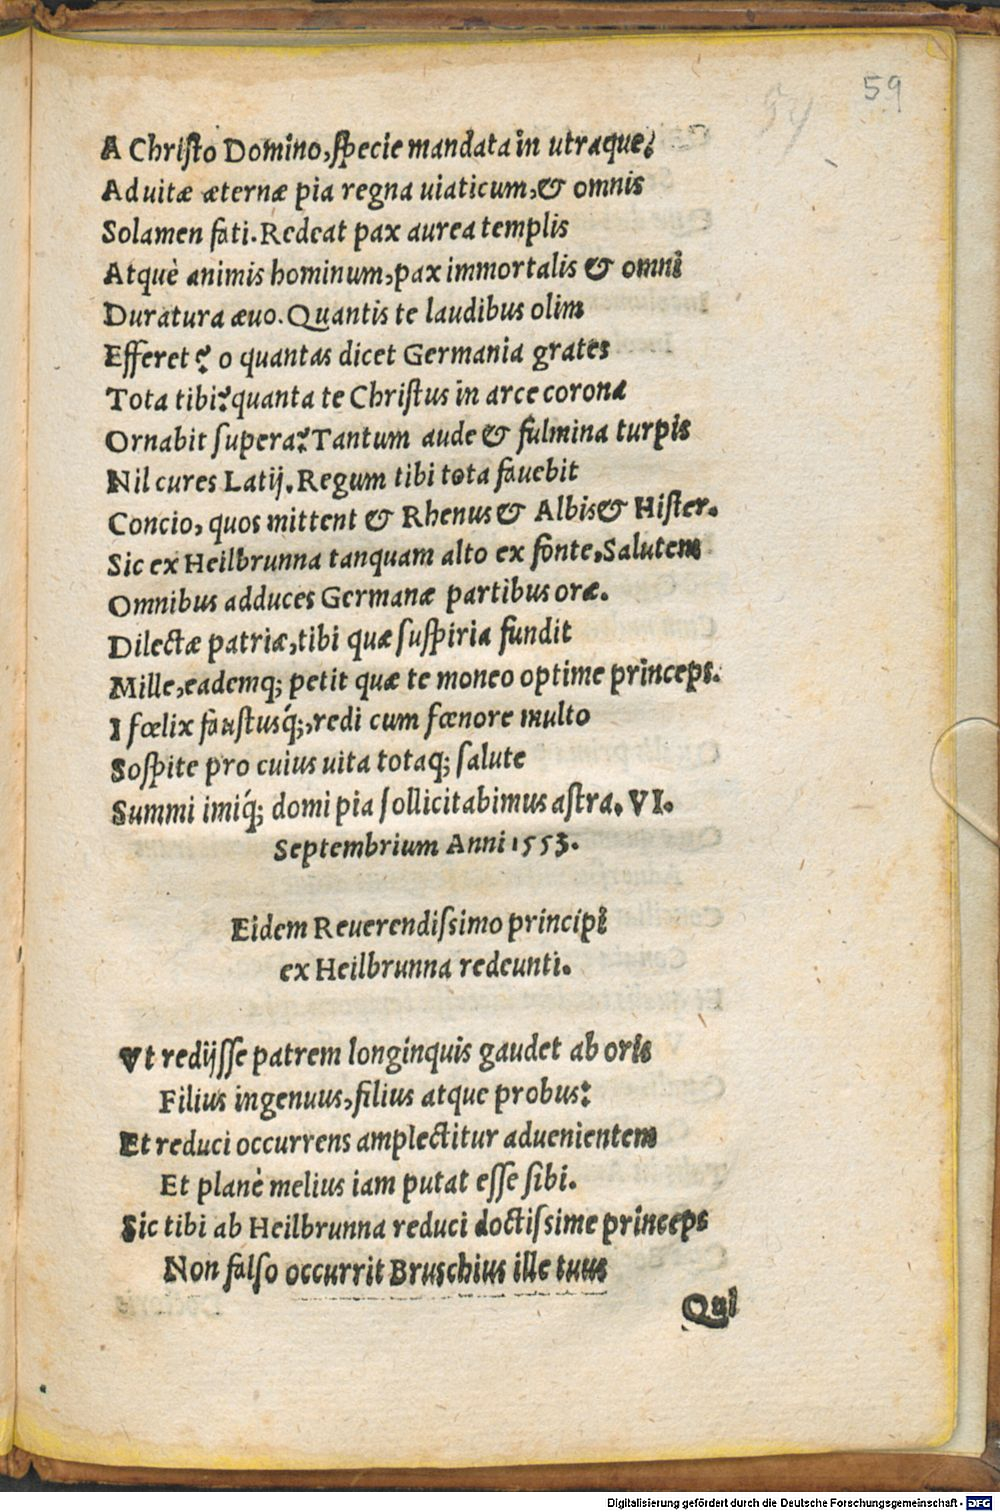 59
A Christo Domino, specie mandata in utraque?
Ad uitæ æternæ pia regna uiaticum, & omnis
Solamen fati. Redeat pax aurea templis
Atquè animis hominum, pax immortalis & omni
Duratura æuo. Quantis te laudibus olim
Efferet? o quantas dicet Germania grates
Tota tibi? quanta te Christus in arce corona
Ornabit supera? Tantum aude & fulmina turpis
Nil cures Latij. Regum tibi tota fauebit
Concio, quos mittent & Rhenus & Albis & Hister.
Sic ex Heilbrunna tanquam alto ex fonte, Salutem
Omnibus adduces Germanæ partibus oræ.
Dilectæ patriæ, tibi quæ suspiria fundit
Mille, eademq; petit quæ te moneo optime princeps.
I fœlix faustusq́;, redi cum fœnore multo
Sospite pro cuius uita totaq; salute
Summi imiq́; domi pia sollicitabimus astra. VI.
Septembrium Anni 1553.
Eidem Reuerendissimo principi
ex Heilbrunna redeunti.
Vt redijsse patrem longinquis gaudet ab oris
Filius ingenuus, filius atque probus:
Et reduci occurrens amplectitur aduenientem
Et planè melius iam putat esse sibi.
Sic tibi ab Heilbrunna reduci doctissime princeps
Non falso occurrit Bruschius ille tuus
Qui
Digitalisierung gefördert durch die Deutsche Forschungsgemeinschaft - DFG